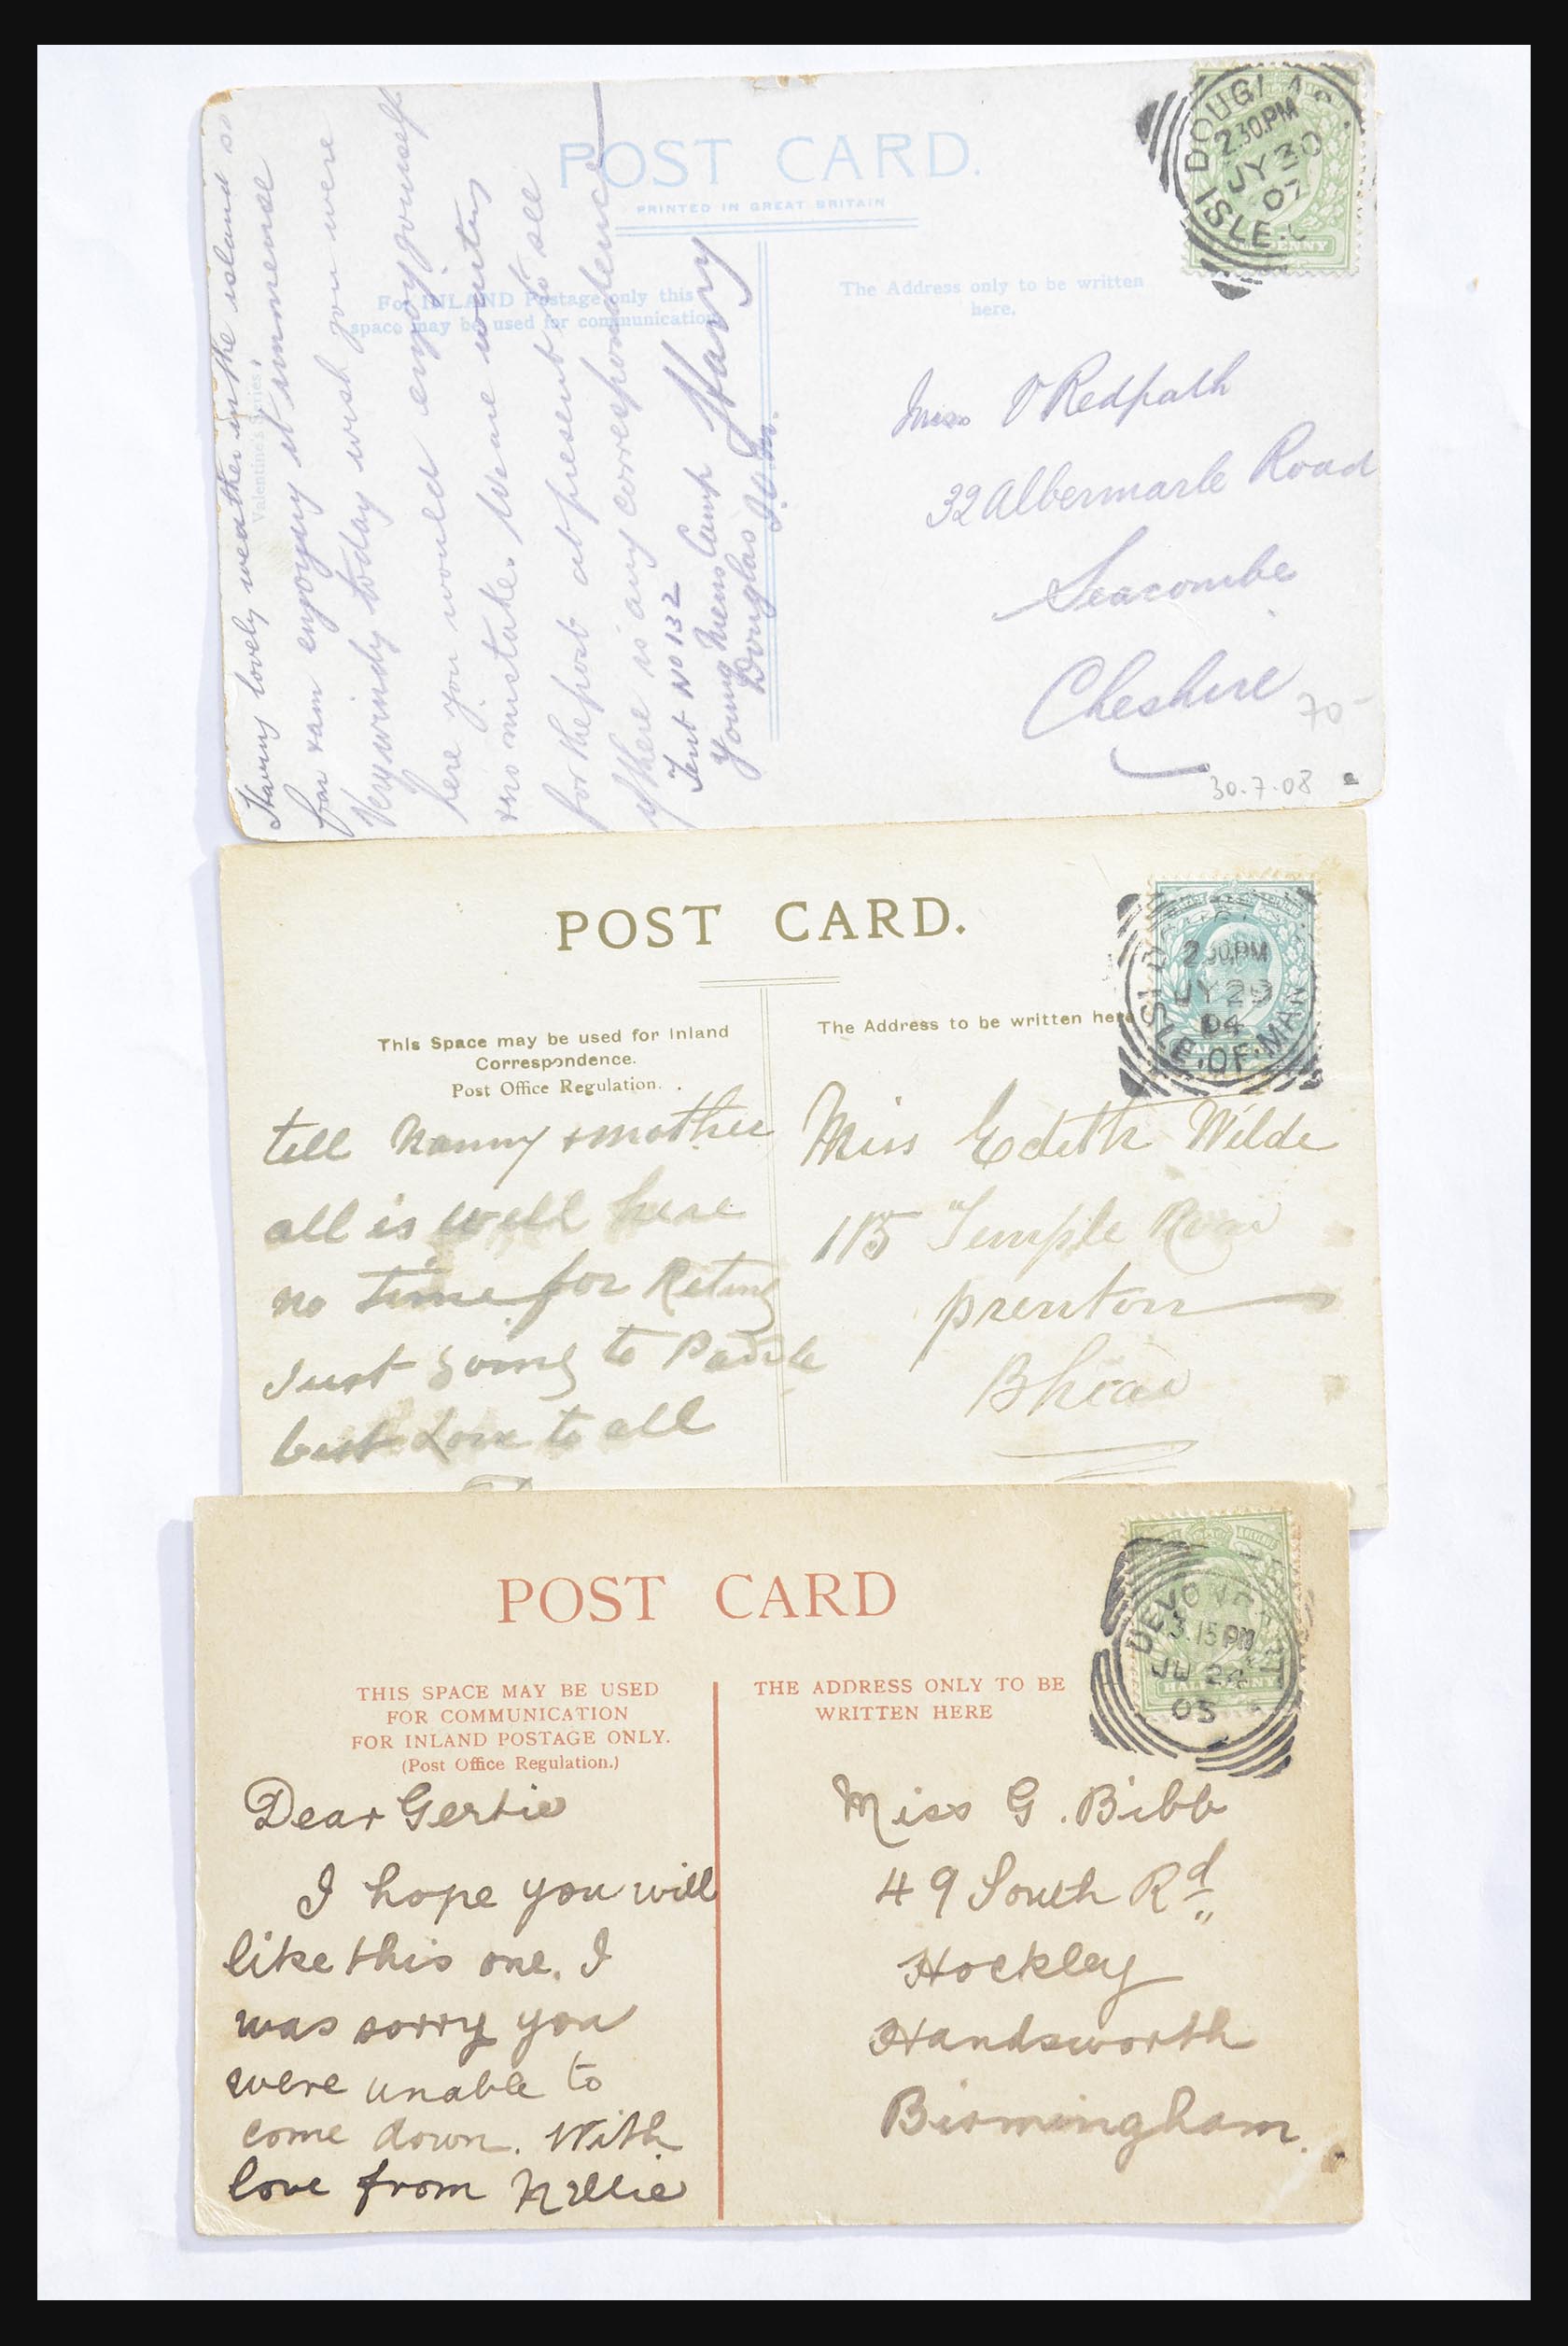 POST CARD.
PRINTED IN GREAT BRITAIN
For INLAND Postage only this
space may be used for communication
The Address only to be written
here.
Valentine's Series
Having lovely weather in the island so
far & am enjoying it immense
Very windy today wish you were
here you would enjoy yourself
& no mistake. We are waiting
for the post at present to see
if there is any correspondence
Harry
Tent No 132
Young Mens Camp
Douglas I.o.m.
DOUGLAS
2.30.PM
JY 30
07
ISLE.
HALFPENNY
Miss O Redpath
32 Albermarle Road
Seacombe
Cheshire
70-
30.7.08
POST CARD.
This Space may be used for Inland
Correspondence.
Post Office Regulation.
The Address to be written here
2.30.PM
JY 29
04
ISLE.OF.MAN
till Nanny & mother
all is well here
no time for Reting
Just going to Paddle
best Love to all
Miss Edith Wilde
115 Temple Road
prenton
Bhead
POST CARD
THIS SPACE MAY BE USED
FOR COMMUNICATION
FOR INLAND POSTAGE ONLY.
(Post Office Regulation.)
THE ADDRESS ONLY TO BE
WRITTEN HERE
DEVONPORT
3.15 PM
JU 24
05
HALFPENNY
Dear Gertie
I hope you will
like this one. I
was sorry you
were unable to
come down. With
love from Nellie
Miss G. Bibb
49 South Rd
Hockley
Handsworth
Birmingham.